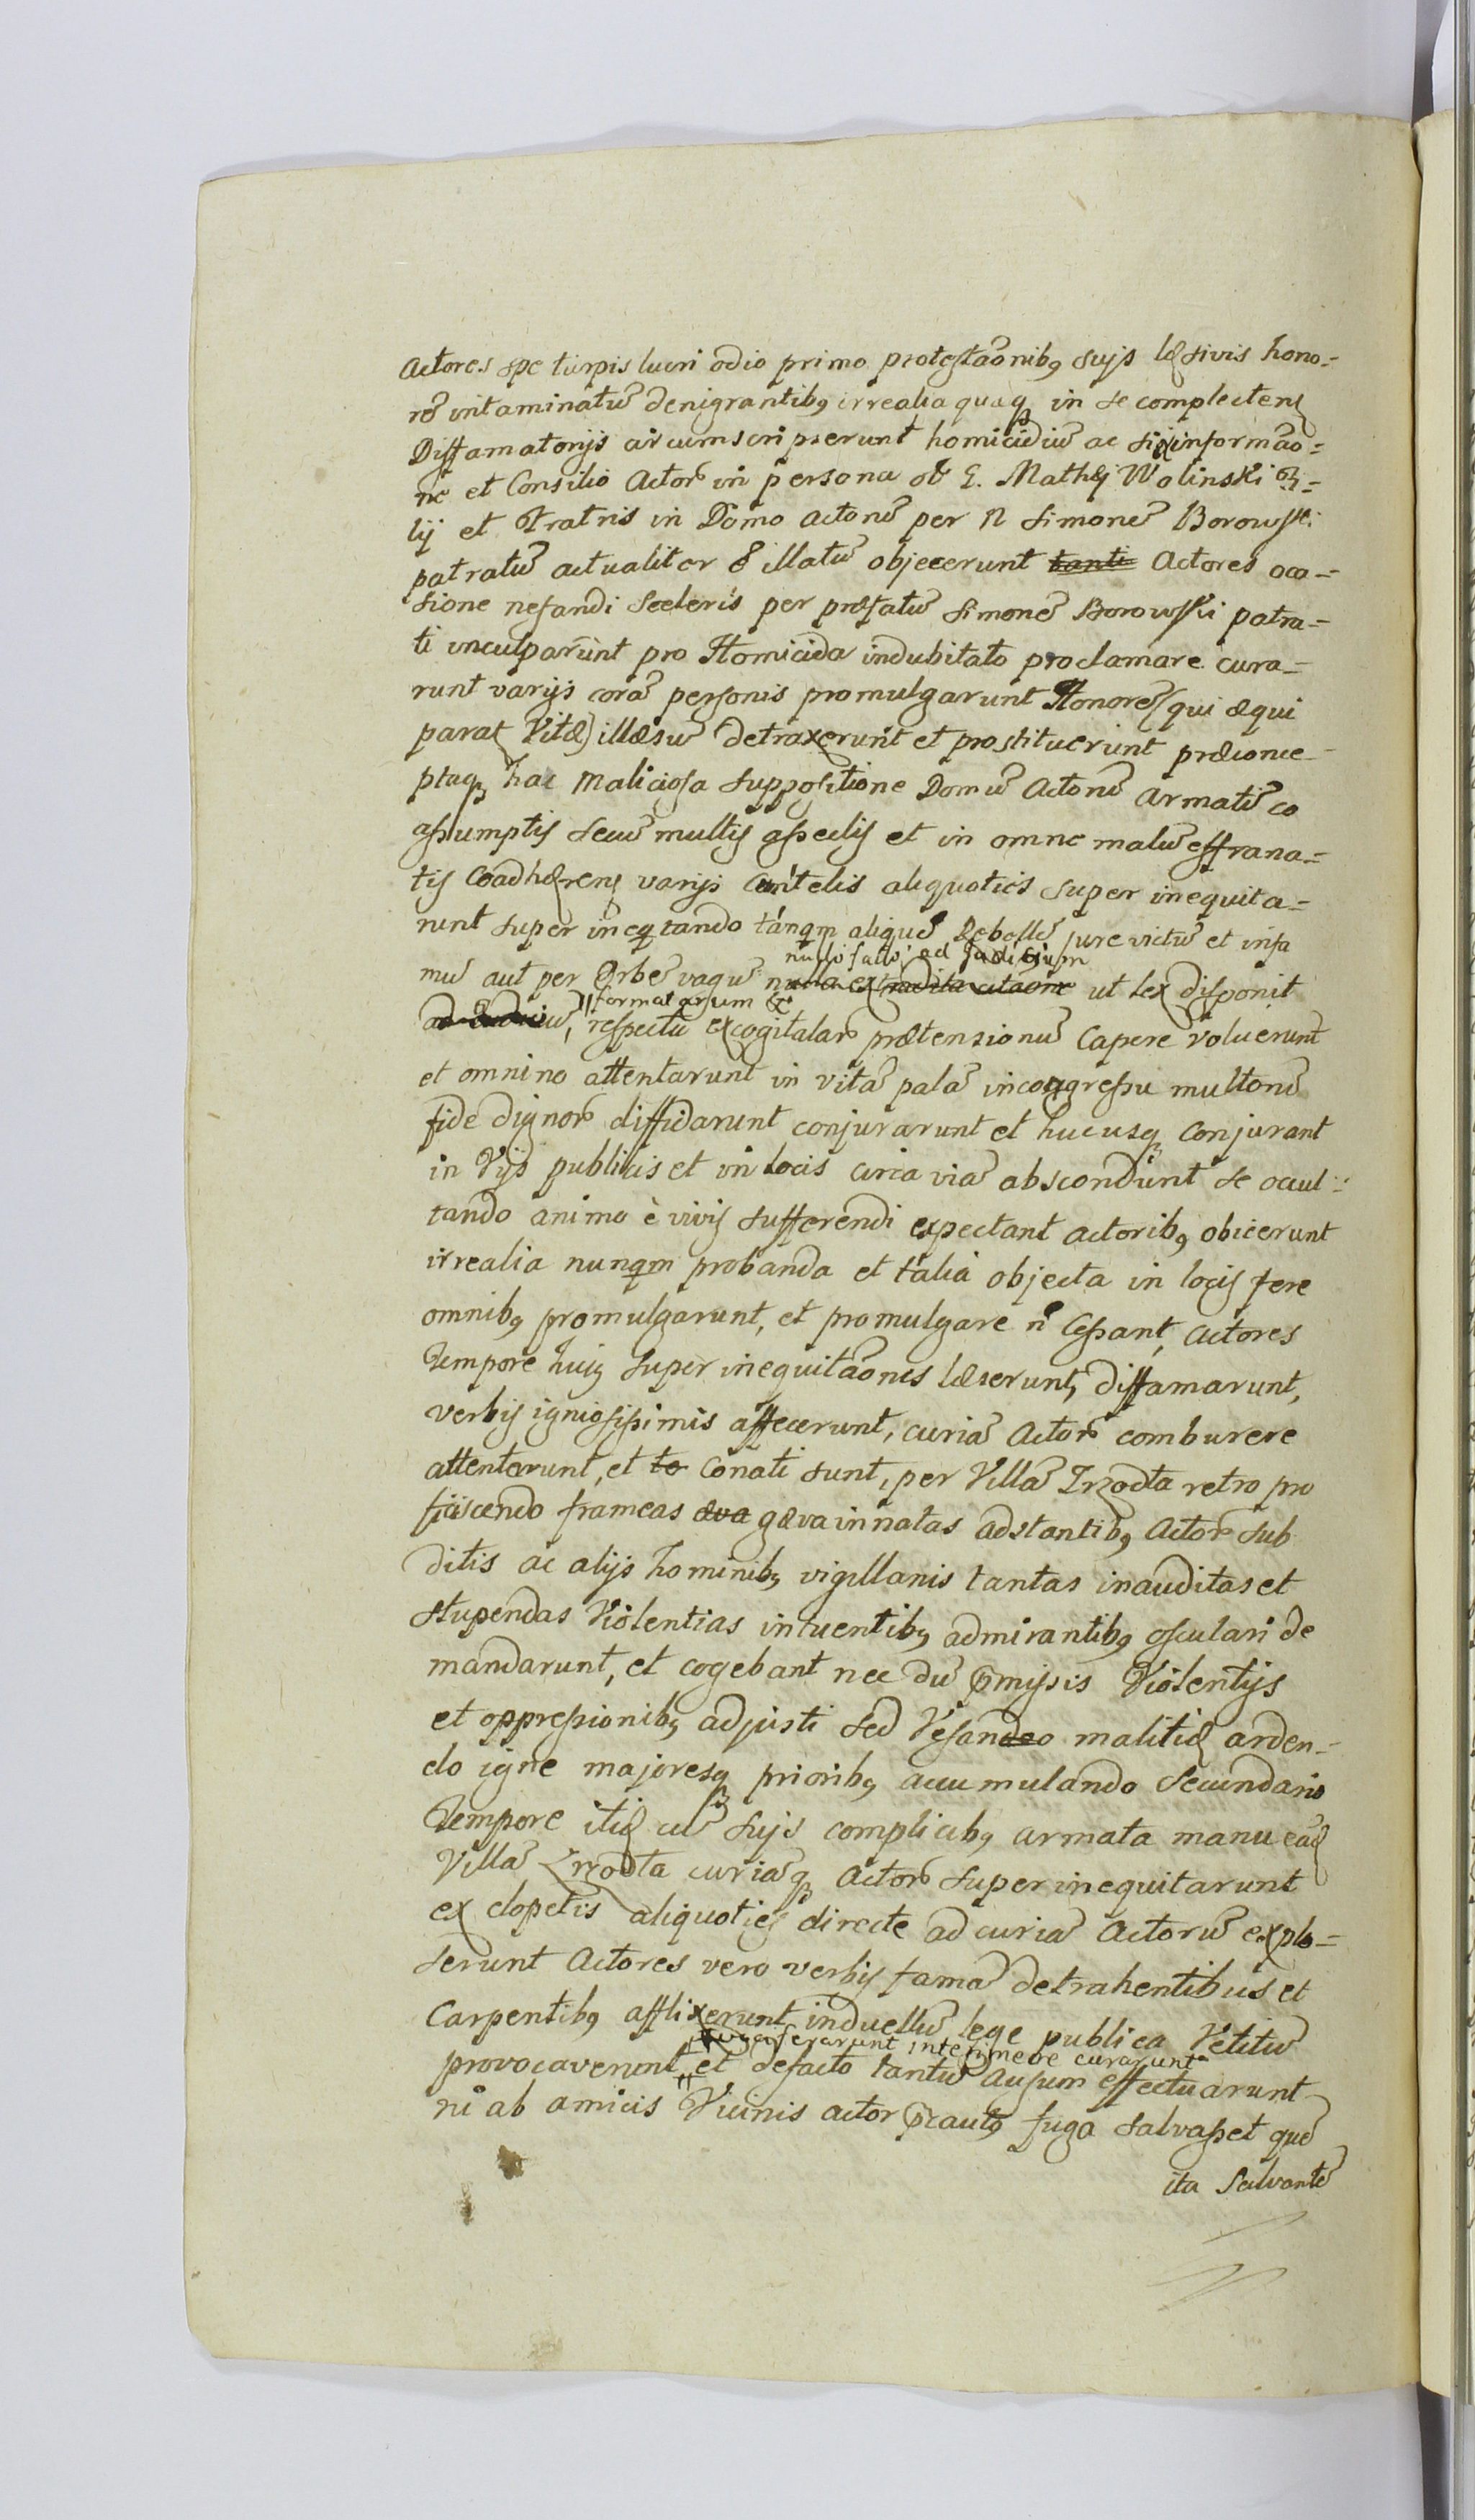 Actores spe turpis lucri odio primo protestãonibꝰ suijs læsivis hono-
rẽ intaminatũ denigrantibꝰ irrealia quaqꝫ in se complecten
Diffamatorijs circumscripserunt homicidiũ ac informão-
ne et Consilio Actor in persona G. Mathæi Wolinski
lij et Fratris in Domo actorũ per N Simonẽ Borowski
patratũ actualiter illatũ objecerunt tanti Actores oca-
sione nefandi Sceleris per præfatũ Simonẽ Borowski patra-
ti inculparunt pro Homicida indubitato proclamare cura-
runt varijs corã personis promulgarunt Honorẽ (qui æqui
parat Vitæ) illæsũ detraxerunt et prostituerunt præconce-
ptaqꝫ hac maliciosa suppositione Domũ Actorũ armatũ co
assumptis secũ multis asseclis et in omne malũ effrana-
tis Coadhæren varijs Cũntelis aliquoties super inequita-
runt super ineqtando tánqm aliquẽ Rebellẽ jure victũ et infa
nullo facto ad Judicium
mũ aut per Orbẽ vagũ nulla ex tradita citaone ut lex disponit
formatarum &
ad Judiciũ, respectu excogitatar prætensionũ Capere voluerunt
et omnino attentarunt in vitã palã in congressu multorũ
fide dignor diffidarunt conjurarunt et hucusqꝫ Conjurant
in Vijs publicis et in locis circa viã abscondunt se occul-
tando animo è vivis sufferendi expectant actoribꝰ obicerunt
irrealia nunqm probanda et talia objecta in locis fere
omnibꝰ promulgarunt, et promulgare ñ Cessant, Actores
Tempore huiꝰ super inequitãonis læserunt, diffamarunt,
verbis igniosissimis affecerunt, curiã Actor comburere
attentarunt, et to Conati sunt, per Villã Zrzodła retro pro
ficiscendo frameas æva gæva innatas adstantibꝰ Actor sub
ditis ac alijs hominibꝰ vigillanis tantas inauditas et
stupendas Violentias intuentibꝰ admirantibꝰ osculari de
mandarunt, et cogebant nec dũ pmissis Violentijs
et oppressionibꝰ adjusti sed Vesandeo malitiæ arden-
do igne majoresqꝫ prioribꝰ accumulando Secundario
Tempore itiꝰ cũ suis complicibꝰ armata manu eãd
Villã Zrzodła curiãqꝫ Actor super inequitarunt
ex clopetis aliquoties directe ad curiã Actorũ explo-
serunt Actores vero verbis famã detrahentibus et
Carpentibꝰ afflixerunt in duellũ lege publica Vetitũ
vociferarunt interimere curarunt
provocaverunt, et defacto tantũ Ausum effectuarunt
ni ab amicis Vicinis actor pcautꝰ fuga salvasset quẽ
ita Salvantẽ